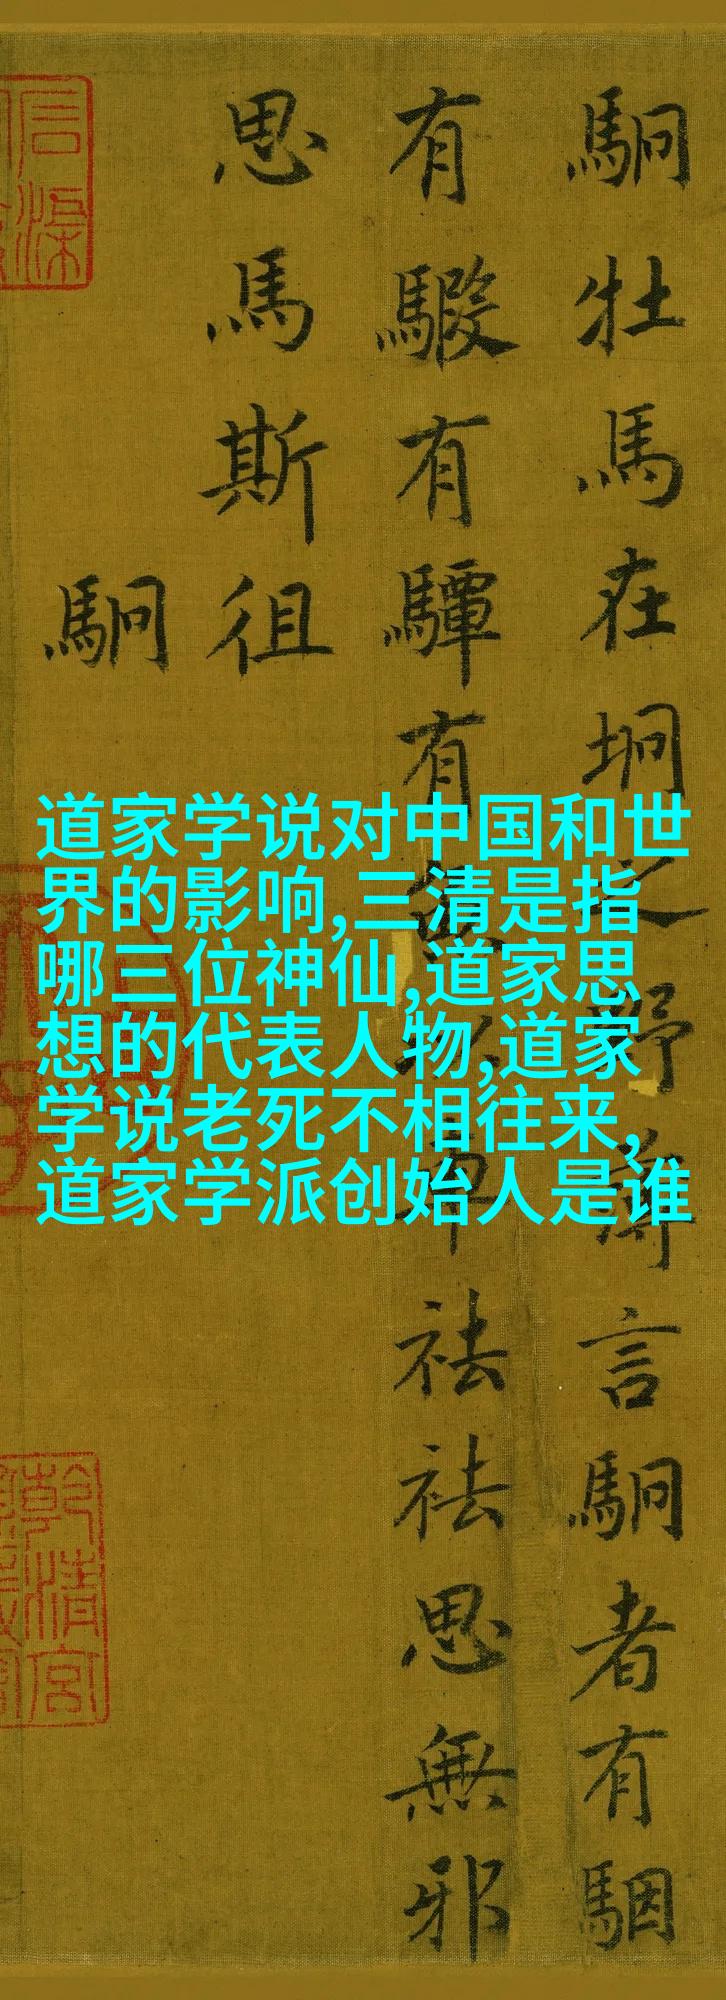 駉牡馬在坰之野薄言駉者有駰
有騢有驔有魚以車祛祛思無邪
思馬斯徂
駉
道家学说对中国和世
界的影响,三清是指
哪三位神仙,道家思
想的代表人物,道家
学说老死不相往来,
道家学派创始人是谁
乾清宮